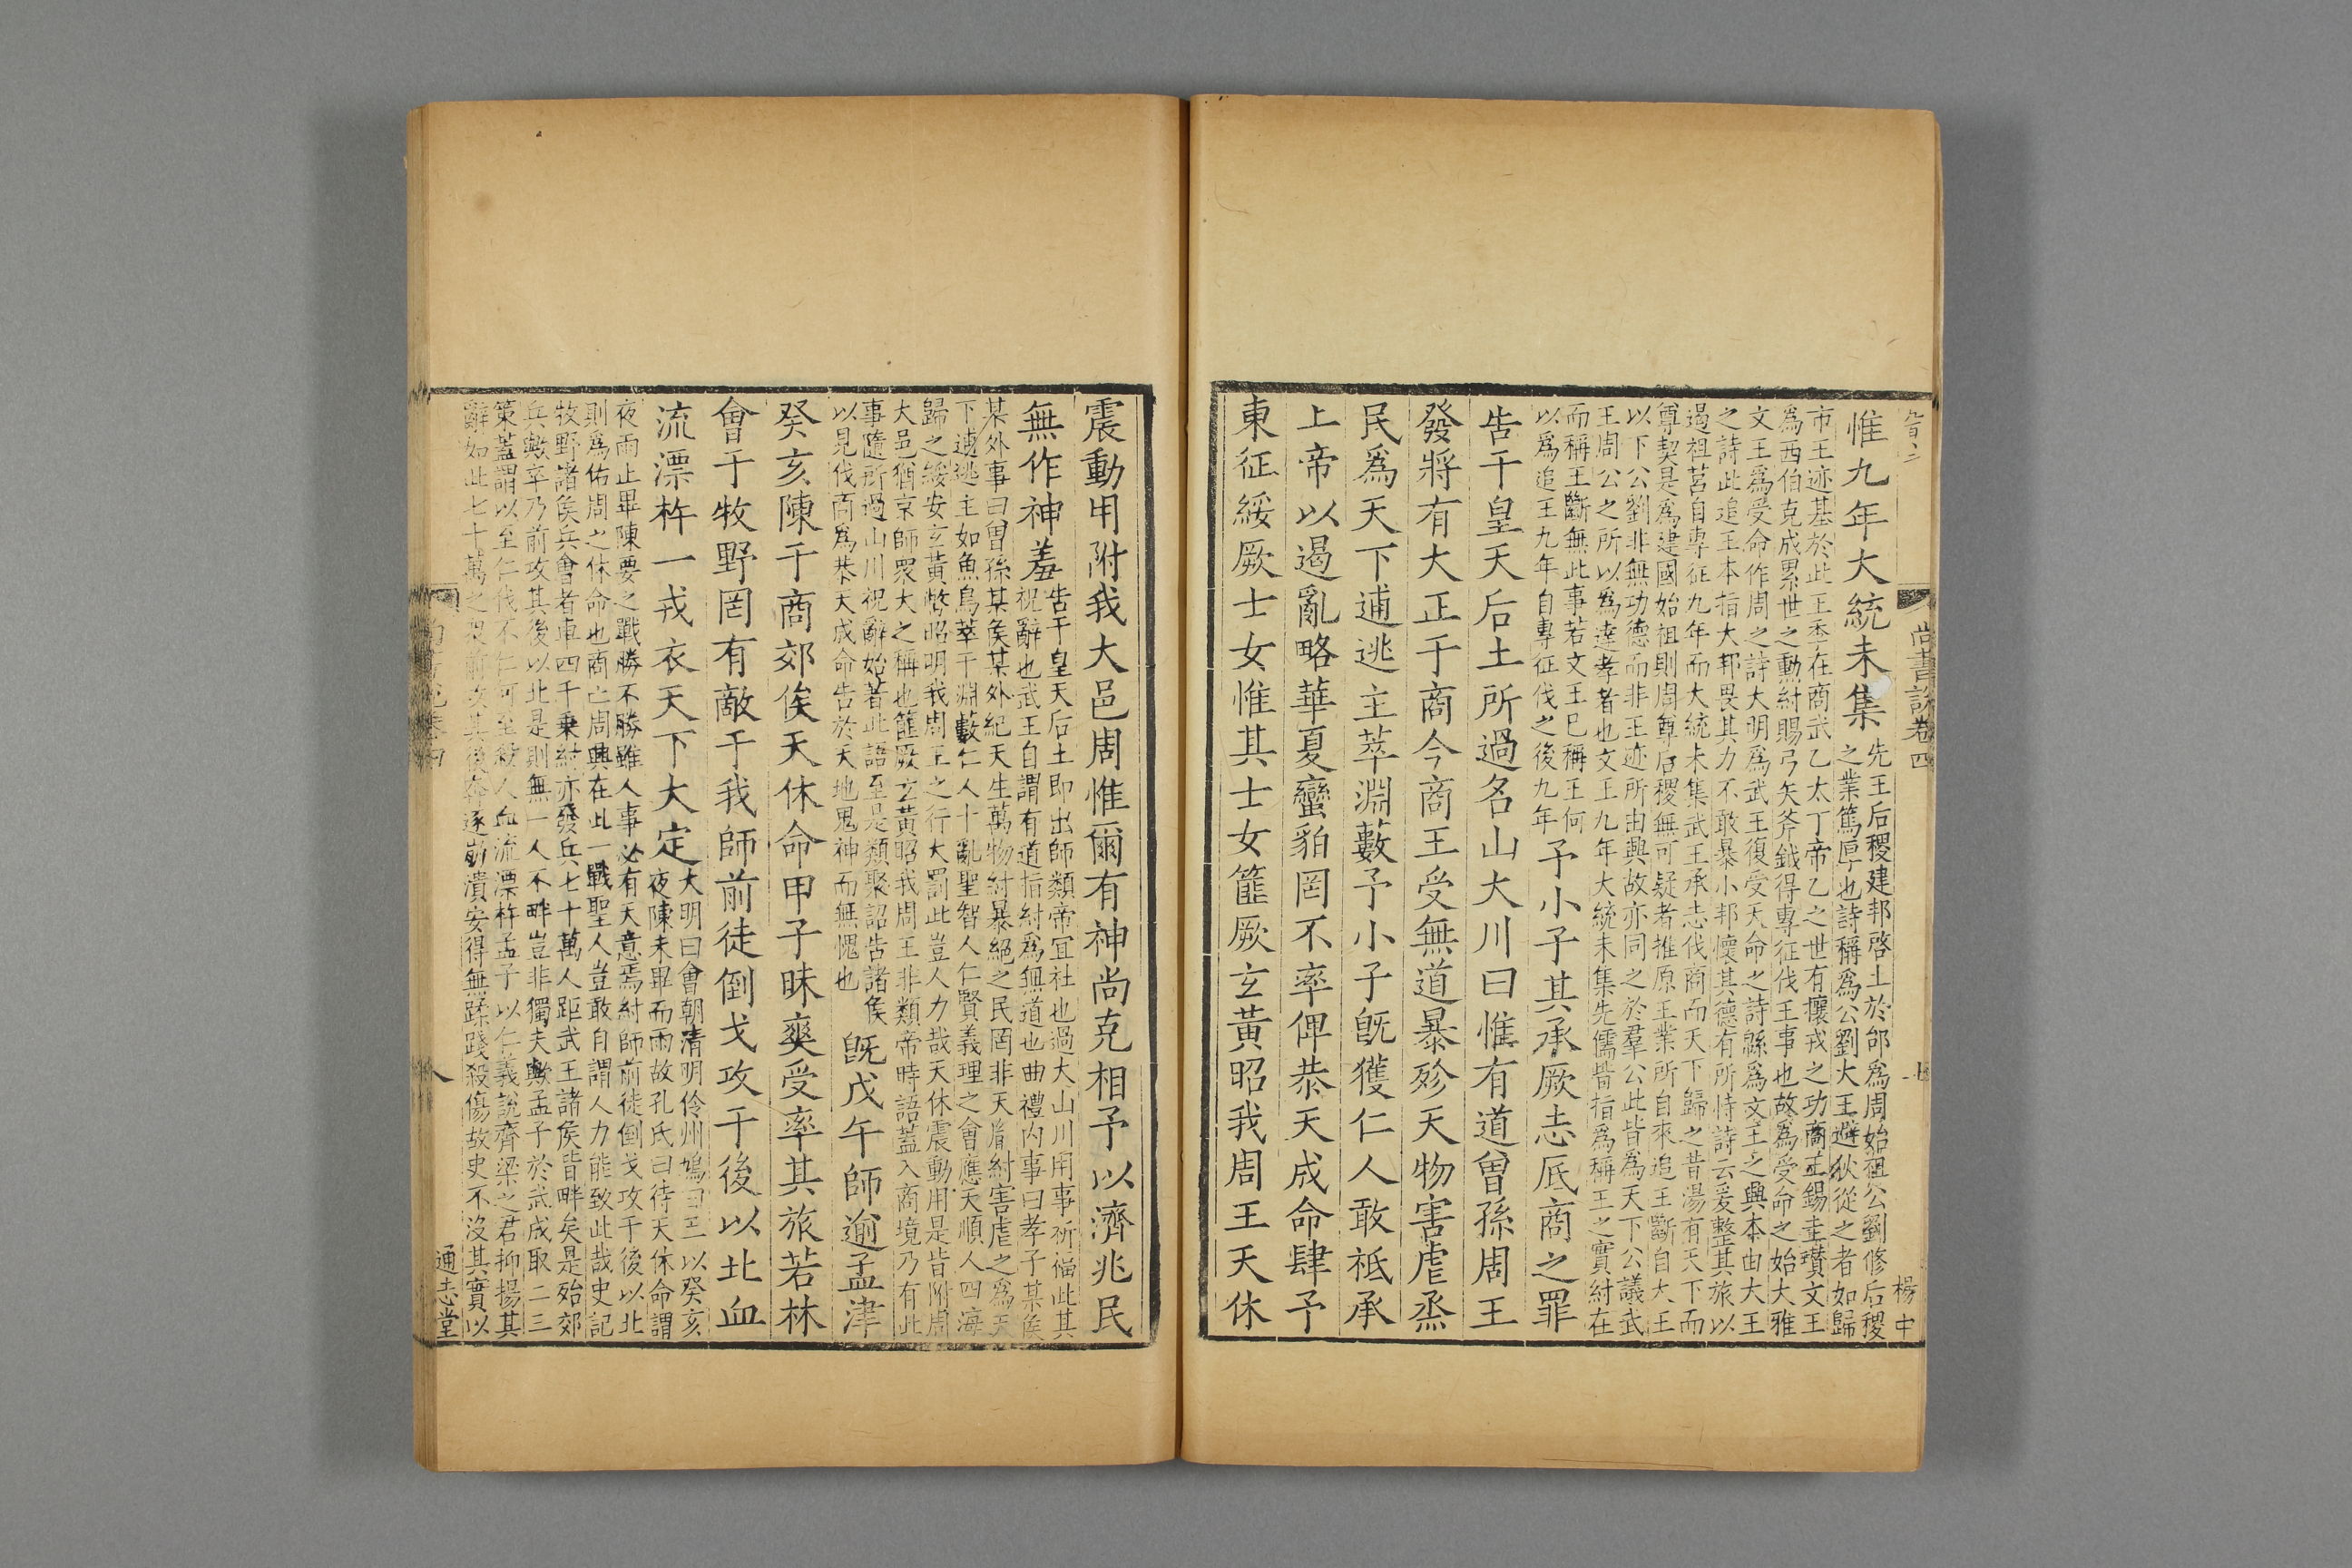 惟九年大統未集先王后稷建邦啓土於邰爲周始祖公劉修后稷
之業篤厚也詩稱爲公劉大王避狄從之者如歸
市王迹基於此王季在商武乙太丁帝乙之世有攘戎之功商王錫圭瓚文王
爲西伯克成累世之勳紂賜弓矢斧鉞得專征伐王事也故爲受命之始大雅
文王爲受命作周之詩大明爲武王復受天命之詩緜爲文王之興本由大王
之詩此追王本指大邦畏其力不敢暴小邦懷其德有所恃詩云爰整其旅以
遏徂莒自專征九年而大統未集武王承志伐商而天下歸之昔湯有天下而
尊契是爲建國始祖則周尊后稷無可疑者推原王業所自來追王斷自大王
以下公劉非無功德而非王迹所由興故亦同之於羣公此皆爲天下公議武
王周公之所以爲達孝者也文王九年大統未集先儒嘗指爲稱王之實紂在
而稱王斷無此事若文王已稱王何
以爲追王九年自專征伐之後九年
予小子其承厥志底商之罪
告于皇天后土所過名山大川曰惟有道曾孫周王
發將有大正于商今商王受無道暴殄天物害虐烝
民爲天下逋逃主萃淵藪予小子旣獲仁人敢祗承
上帝以遏亂略華夏蠻貊罔不率俾恭天成命肆予
東征綏厥士女惟其士女篚厥玄黃昭我周王天休
尚書說卷四
楊中
震動用附我大邑周惟爾有神尚克相予以濟兆民
無作神羞告于皇天后土即出師類帝宜社也過大山川用事祈福此其
祝辭也武王自謂有道指紂爲無道也曲禮內事曰孝子某侯
某外事曰曾孫某侯某外紀天生萬物紂暴絕之民罔非天胤紂害虐之爲天
下逋逃主如魚鳥萃于淵藪仁人十亂聖智人仁賢義理之會應天順人四海
歸之綏安玄黃幣昭明我周王之行大罰此豈人力哉天休震動用是皆附周
大邑猶京師衆大之稱也篚厥玄黃昭我周王非類帝時語蓋入商境乃有此
事隨所過山川祝辭始著此語至是類聚詔告諸侯
以見伐商爲恭天成命告於天地鬼神而無愧也
旣戊午師逾孟津
癸亥陳于商郊俟天休命甲子昧爽受率其旅若林
會于牧野罔有敵于我師前徒倒戈攻于後以北血
流漂杵一戎衣天下大定大明曰會朝清明伶州鳩曰王以癸亥
夜陳未畢而雨故孔氏曰待天休命謂
夜雨止畢陳要之戰勝不勝雖人事必有天意焉紂師前徒倒戈攻于後以北
則爲佑周之休命也商亡周興在此一戰聖人豈敢自謂人力能致此哉史記
牧野諸侯兵會者車四千乘紂亦發兵七十萬人距武王諸侯皆畔矣是殆郊
兵歟卒乃前攻其後以北是則無一人不畔豈非獨夫歟孟子於武成取二三
策蓋謂以至仁伐不仁何至殺人血流漂杵孟子以仁義說齊梁之君抑揚其
辭如此七十萬之衆前攻其後奔逐崩潰安得無蹂踐殺傷故史不沒其實以
八
通志堂